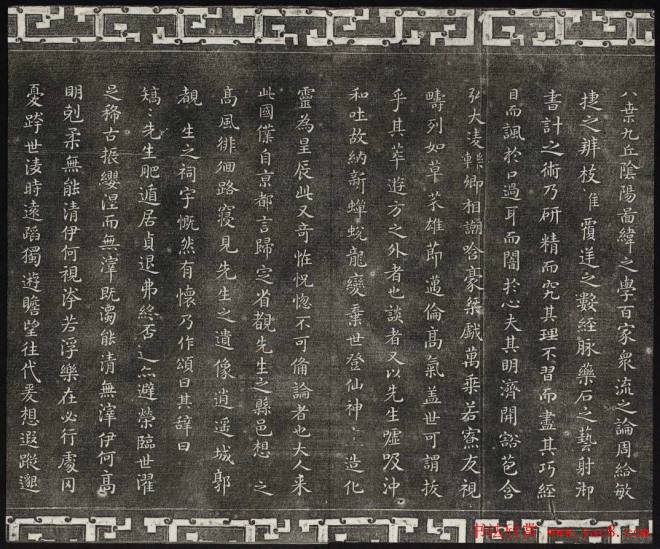 八索九丘陰陽啚緯之學百家衆流之論周給敏
捷之辨枝離覆逆之數經脉藥石之藝射御
書計之術乃研精而究其理不習而盡其巧經
目而諷於口過耳而闇於心夫其明濟開豁苞含
弘大淩轢卿相謿哈豪桀戲萬乘若寮友視
疇列如草芥雄節邁倫高氣盖世可謂拔
乎其萃遊方之外者也談者又以先生噓吸沖
和吐故納新蟬蛻龍變棄世登仙神〻造化
靈為星辰此又奇恠怳惚不可備論者也大人来
此國僕自京都言歸定省覩先生之縣邑想 之
高風徘徊路寢見先生之遺像逍遥城郭
覩 生之祠宇慨然有懷乃作頌曰其辭曰
矯〻先生肥遁居貞退弗終否 亦避榮臨世濯
足稀古振纓涅而無滓既濁能清無滓伊何高
明剋柔無能清伊何視洿若浮樂在必行處囚
憂跨世淩時遠蹈獨遊瞻望往代爰想遐蹤邈
书法欣赏 www.yac8.com